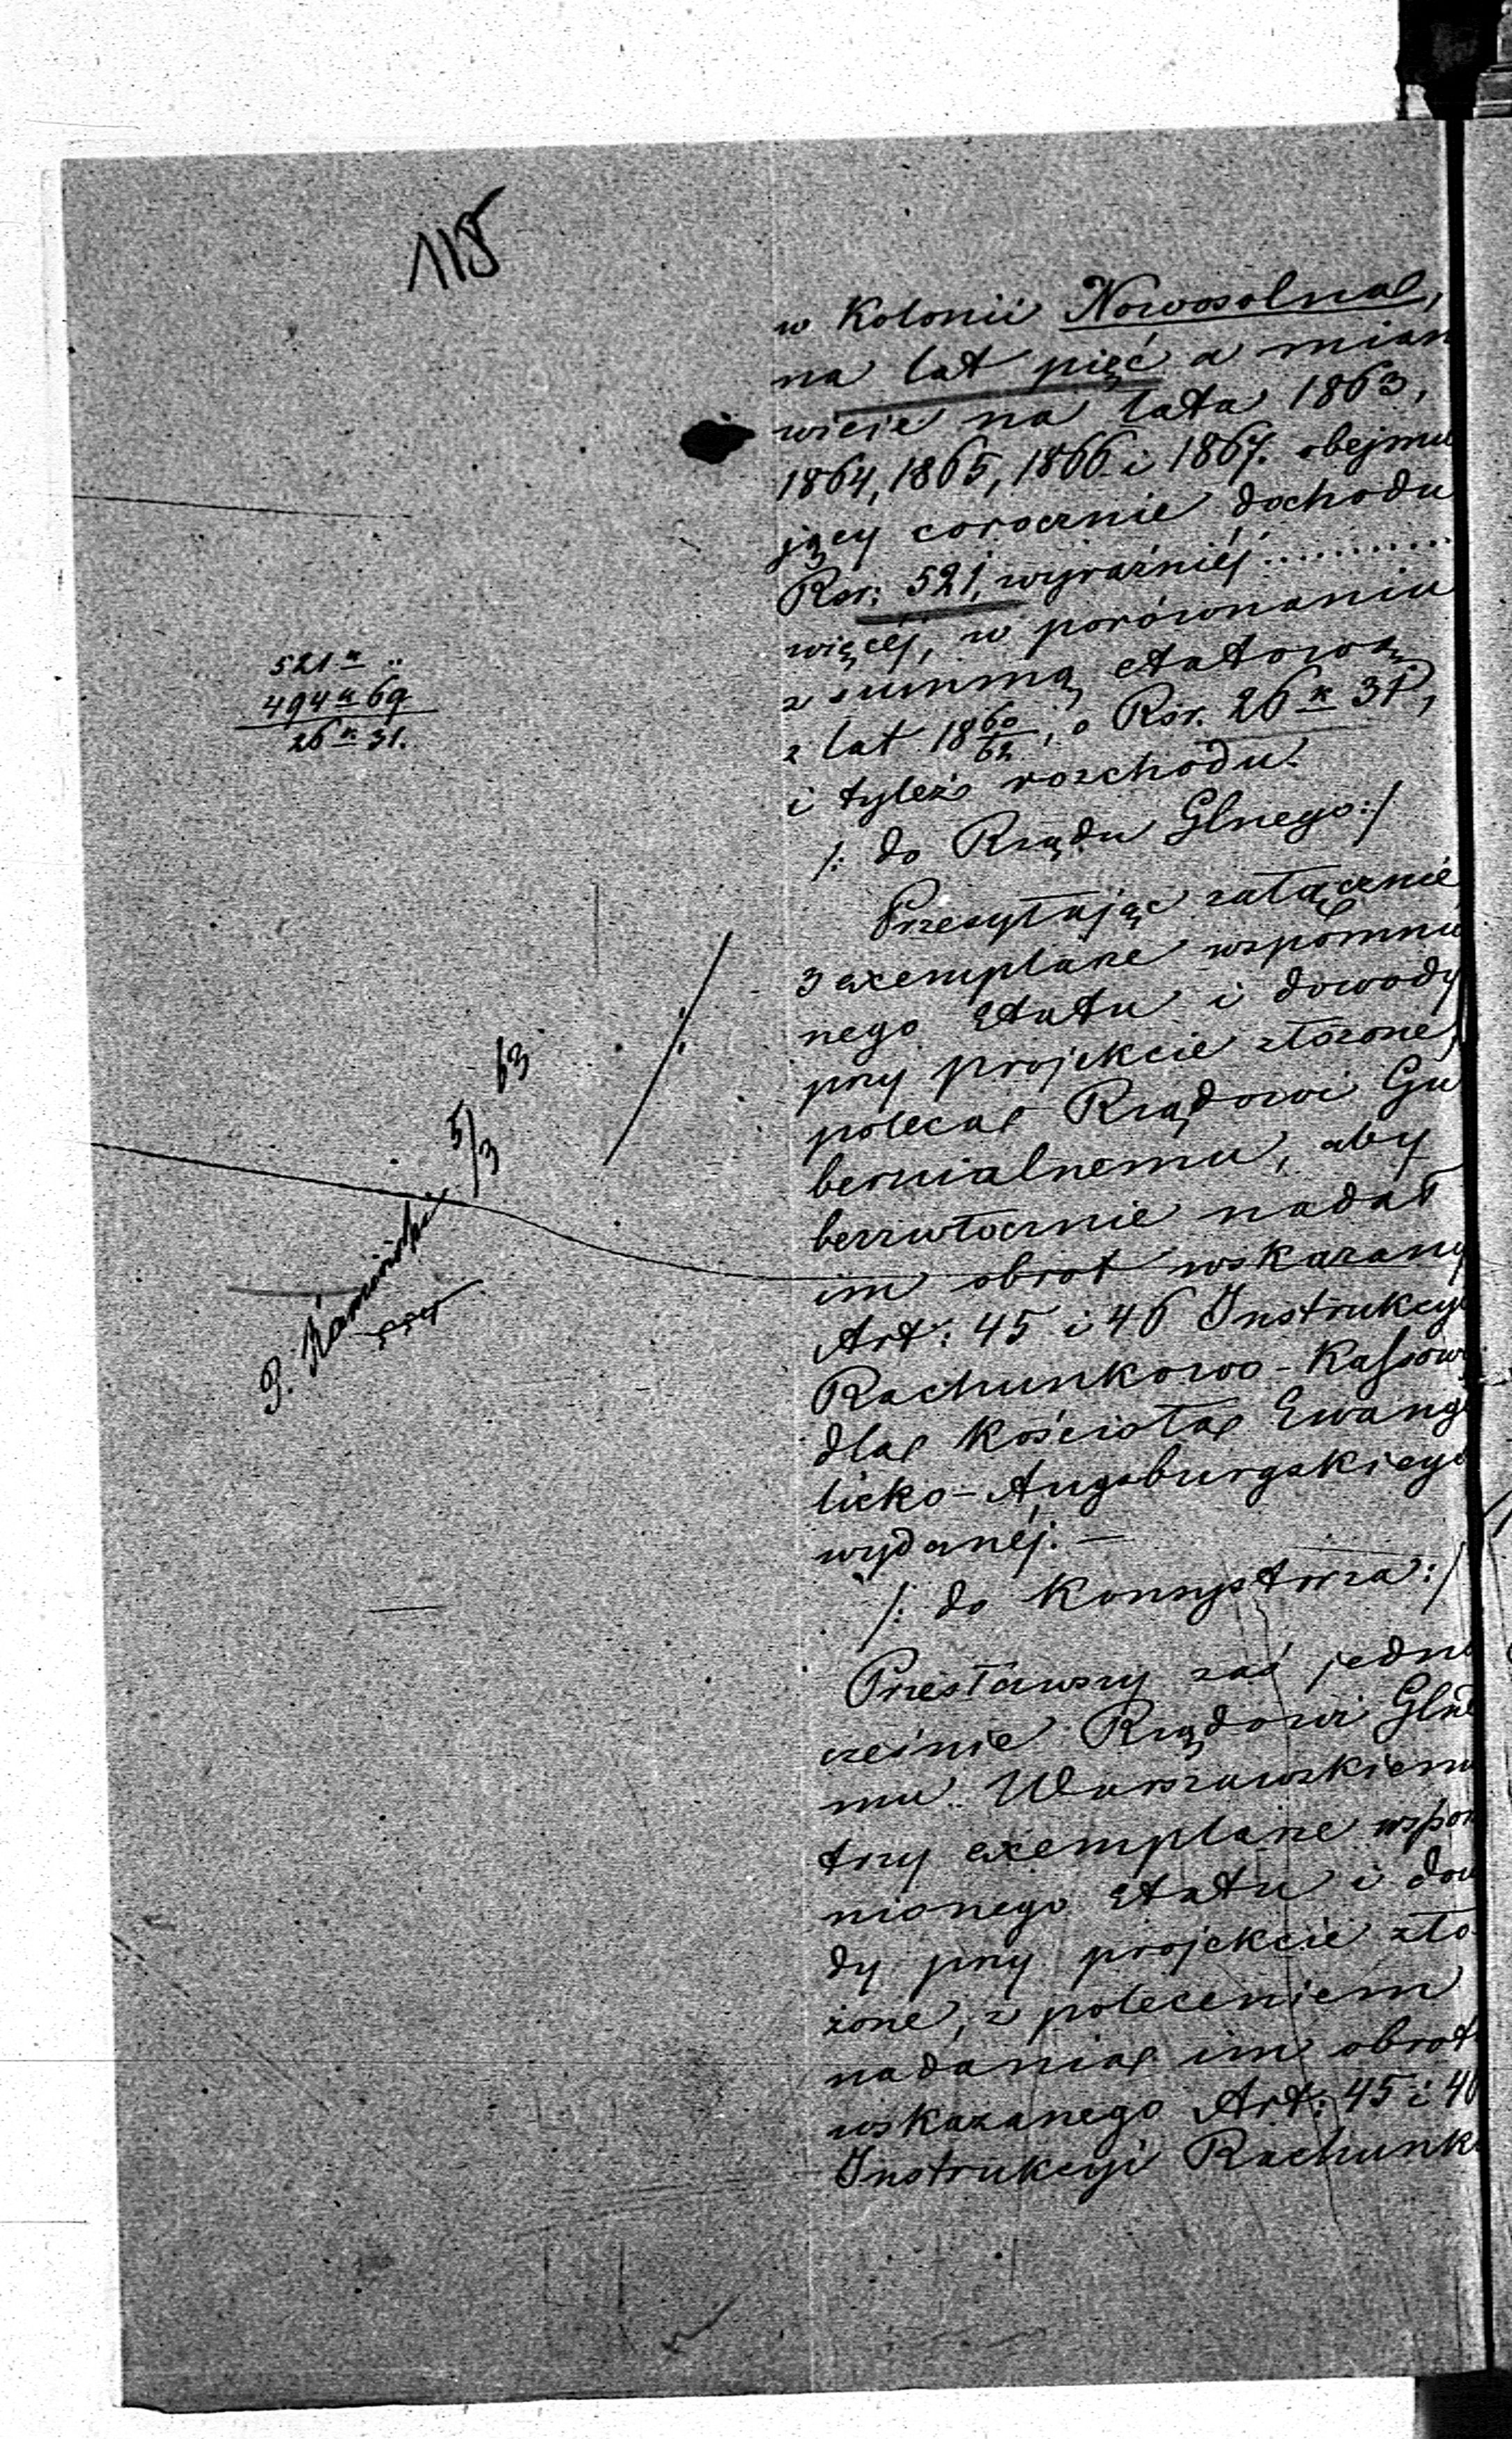 118
w Kolonii Nowosolna,
na lat pięć a mian
wicie na lata 1863,
1864, 1865, 1866 i 1867. obejmu
jący corocznie dochodu
Rsr: 521, wyraźniéj ...........
więcéj, w porównaniu
z summą etatową
z lat 18 60/62, o Rsr. 26 k 31,
i tyleż rozchodu.
/: do Rządu Glnego :/
Przesyłając załącznie
3 exemplarze wspomnio
nego Etatu i dowody
przy projekcie złożone,
poleca Rządowi Gu
bernialnemu, aby
bezzwłocznie nadał
im obrot wskazany
Art: 45 i 46 Instrukcyi
Rachunkowo-Kassow
dla Kościoła Ewange
licko-Augsburgskiego
wydanéj. —
/: do Konsystorza :/
Przesławszy zaś jedno
cześnie Rządowi Glne
mu Warszawskiemu
trzy exemplarze wspom
nionego Etatu i dow
dy przy projekcie zło
żone, z poleceniem
nadania im obrot
wskazanego Art: 45 i 46
Instrukcyi Rachunk
521 k ..
494 k 69
26 k 31.
P. Kamiński 5/3 63